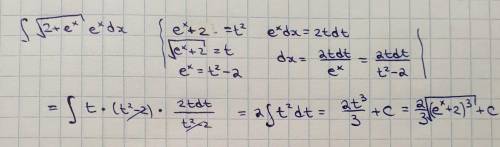 ∫ √(2+eˣ) eˣdx { eˣ+2 = t² eˣdx = 2tdt
√(eˣ+2) = t dx = 2tdt/eˣ = 2tdt/(t²-2)
eˣ = t²-2
= ∫ t • (t²-2) • 2tdt/(t²-2) = 2∫t²dt = 2t³/3 + c = 2/3 √(eˣ+2)³ + c